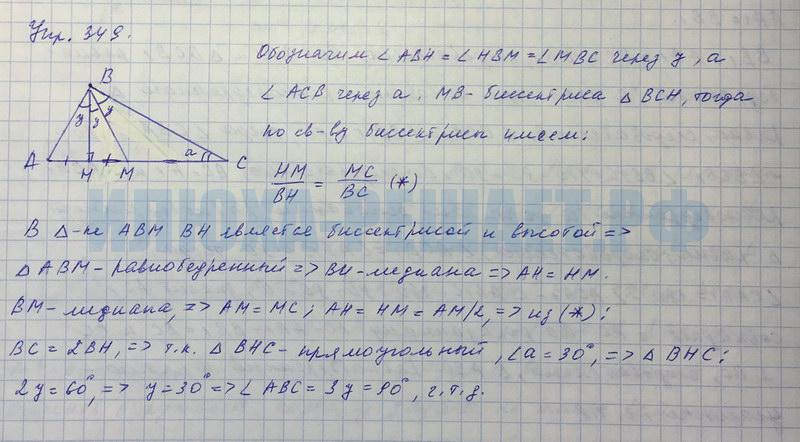 Упр. 349.
Обозначим ∠ABH = ∠HBM = ∠MBC через y, а
∠ACB через a. MB - биссектриса △BCH, тогда
по св-ву биссектрисы имеем:
HM/BH = MC/BC (*)
B
y y y
A H M a C
В △-ке ABM BH является биссектрисой и высотой =>
△ABM - равнобедренный => BH - медиана => AH = HM.
BM - медиана, => AM = MC; AH = HM = AM/2, => из (*):
BC = 2BH, => т.к. △BHC - прямоугольный, ∠a = 30°, => △BHC:
2y = 60°, => y = 30° => ∠ABC = 3y = 90°, ч.т.д.
ИЛЮХА-РЕШАЕТ.РФ